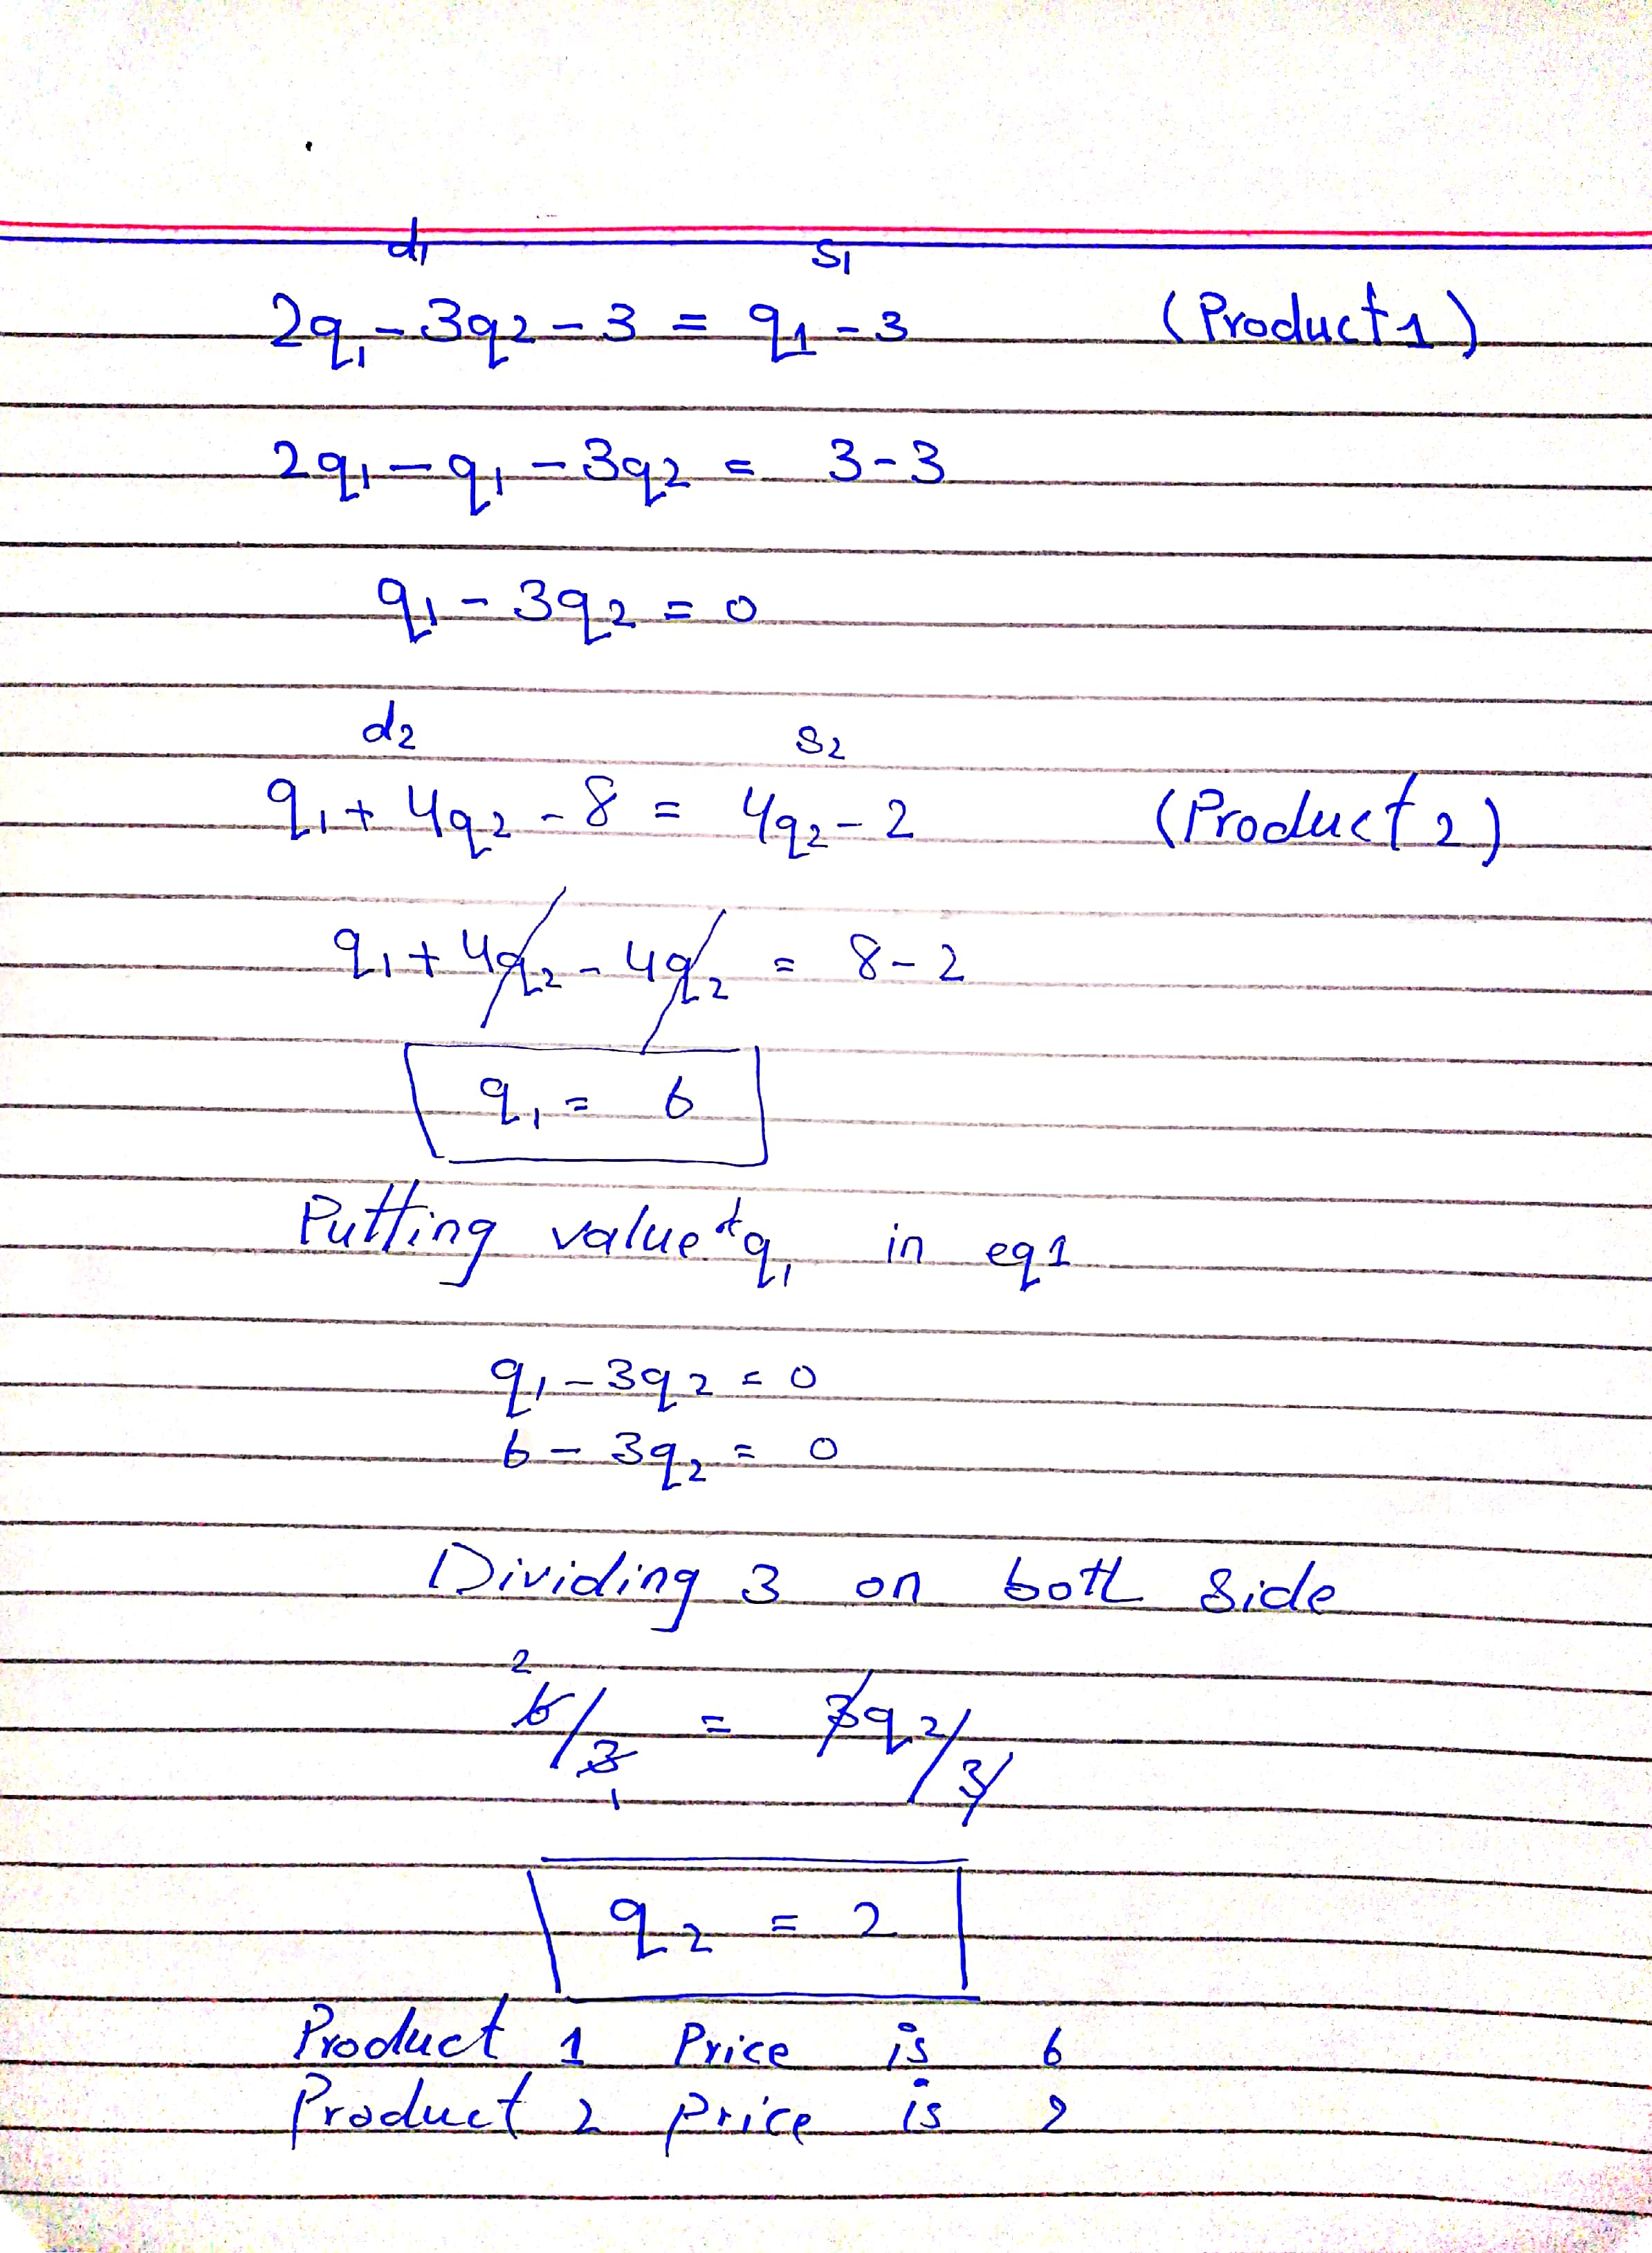 d1 s1
2q1 - 3q2 - 3 = q1 - 3 (Product 1)
2q1 - q1 - 3q2 = 3 - 3
q1 - 3q2 = 0
d2 s2
q1 + 4q2 - 8 = 4q2 - 2 (Product 2)
q1 + 4q2 - 4q2 = 8 - 2
q1 = 6
Putting value of q1 in eq1
q1 - 3q2 = 0
6 - 3q2 = 0
Dividing 3 on both side
2
6/3 = 3q2/3
1
q2 = 2
Product 1 Price is 6
Product 2 price is 2